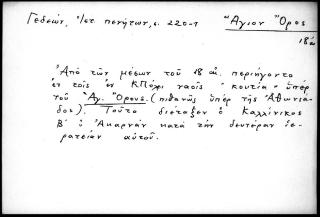 Γεδεών, Ἱστ. πενήτων, σ. 220-1
"Ἅγιον Ὄρος
18 αἰ.
Ἀπὸ τῶν μέσων τοῦ 18 αἰ. περιήγοντο
ἐν τοῖς ἐν ΚΠόλει ναοῖς "κουτία" ὑπὲρ
τοῦ Ἁγ. Ὄρους. (πιθανῶς ὑπὲρ τῆς Ἀθωνιά-
δος). Τοῦτο διέταξεν ὁ Καλλίνικος
Β' ὁ Ἀκαρνὰν κατὰ τὴν δευτέραν ἱε-
ρατείαν αὐτοῦ.